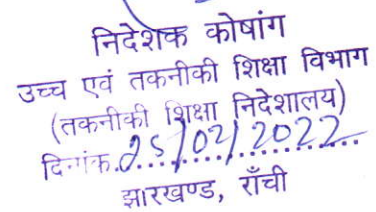 निदेशक कोषांग
उच्च एवं तकनीकी शिक्षा विभाग
(तकनीकी शिक्षा निदेशालय)
दिनांक.25/02/2022......
झारखण्ड, राँची